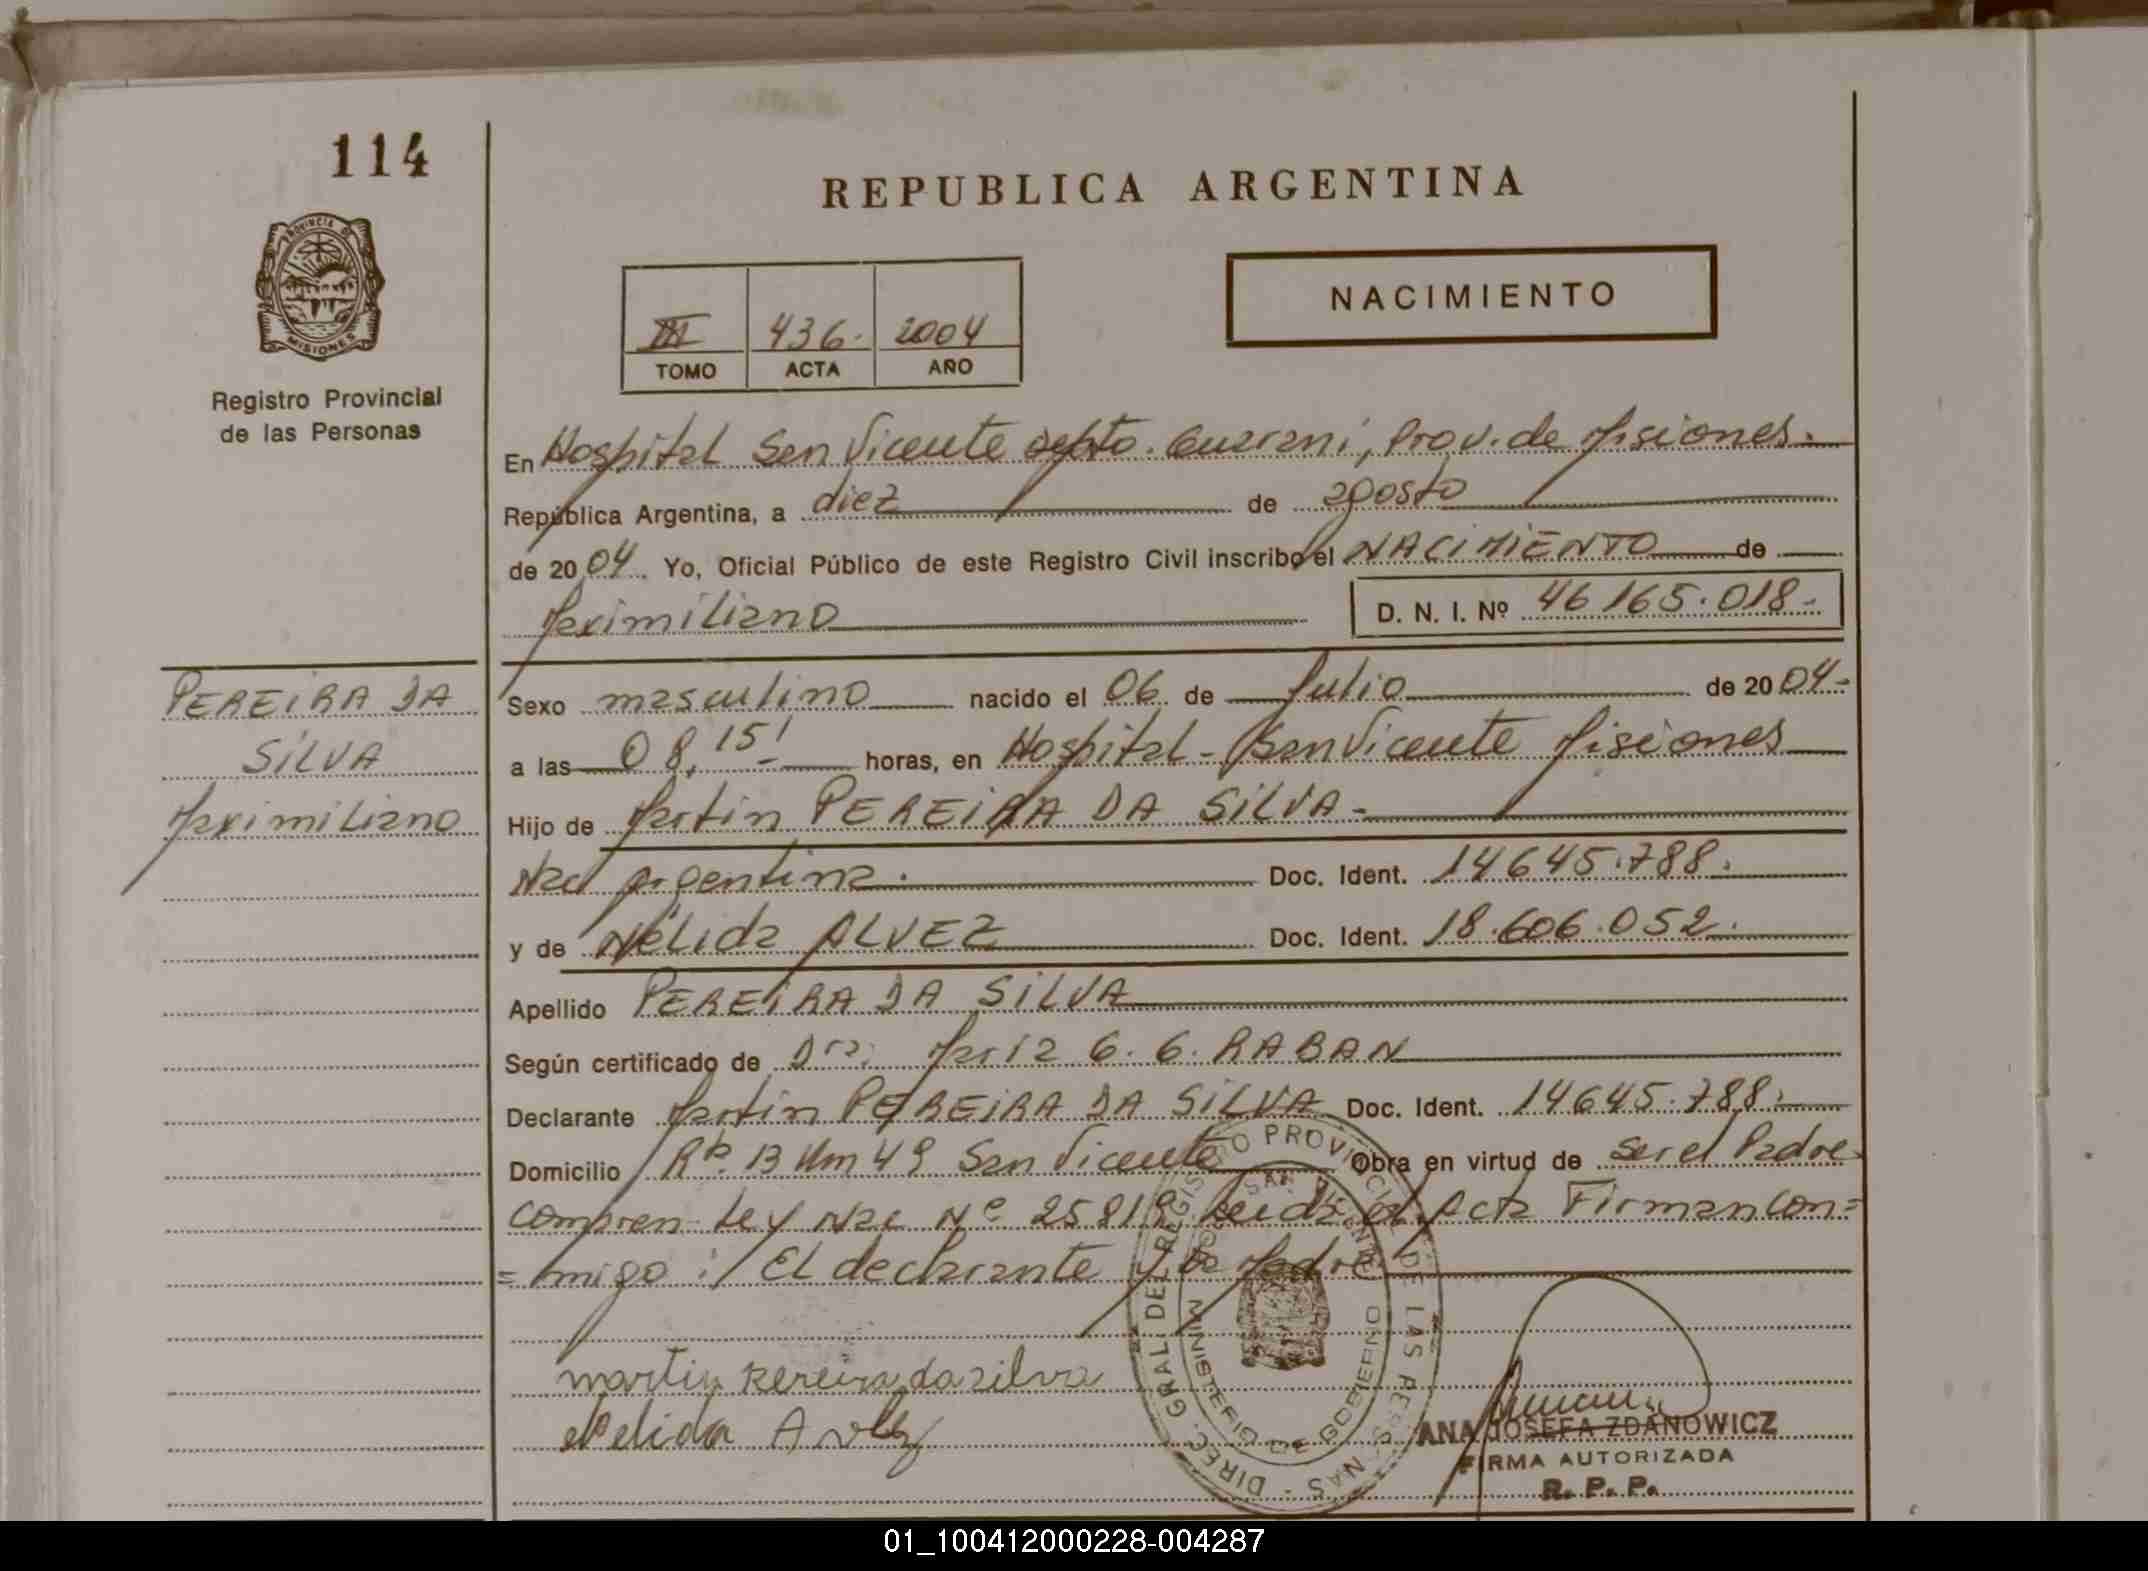 114
REPUBLICA ARGENTINA
PROVINCIA DE
MISIONES
NACIMIENTO
III 436. 2004
TOMO ACTA AÑO
Registro Provincial
de las Personas
En Hospital San Vicente depto. Guarani, Prov. de Misiones.
República Argentina, a diez de agosto
de 2004 Yo, Oficial Público de este Registro Civil inscribo el NACIMIENTO de
Maximiliano D. N. I. Nº 46165.018-
PEREIRA DA
SILVA
Maximiliano
Sexo masculino nacido el 06 de Julio de 2004-
a las 08,15' horas, en Hospital - San Vicente Misiones
Hijo de Martin PEREIRA DA SILVA-
Nac Argentina. Doc. Ident. 14645.788.
y de Nélida ALVEZ Doc. Ident. 18.606.052.
Apellido PEREIRA DA SILVA
Según certificado de Dra. Maria G. G. RABAN
Declarante Martin PEREIRA DA SILVA Doc. Ident. 14645.788.
Domicilio 13 Km 49 San Vicente Obra en virtud de ser el Padre
Ley Nac Nº 25819 Leida el Acta Firman Con=
=migo: El declarante y la Madre
martin Pereira da silva
Nelida
DIREC. GRAL. DEL REGISTRO PROVINCIAL DE LAS PERSONAS
MINISTERIO DE GOBIERNO
ANA JOSEFA ZDANOWICZ
FIRMA AUTORIZADA
R. P. P.
01_100412000228-004287